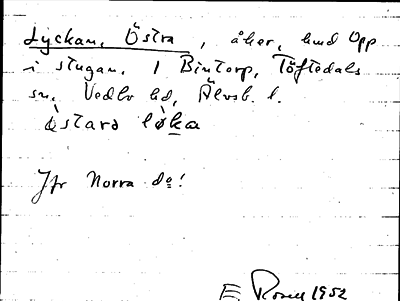 Lyckan, Östra, åker, hmd Opp
i stugan, 1 Bintorp, Töftedals
sn, Vedbo hd, Älvsb. l.
östara lø̀ka
Jfr Norra do!
E Rosell 1952